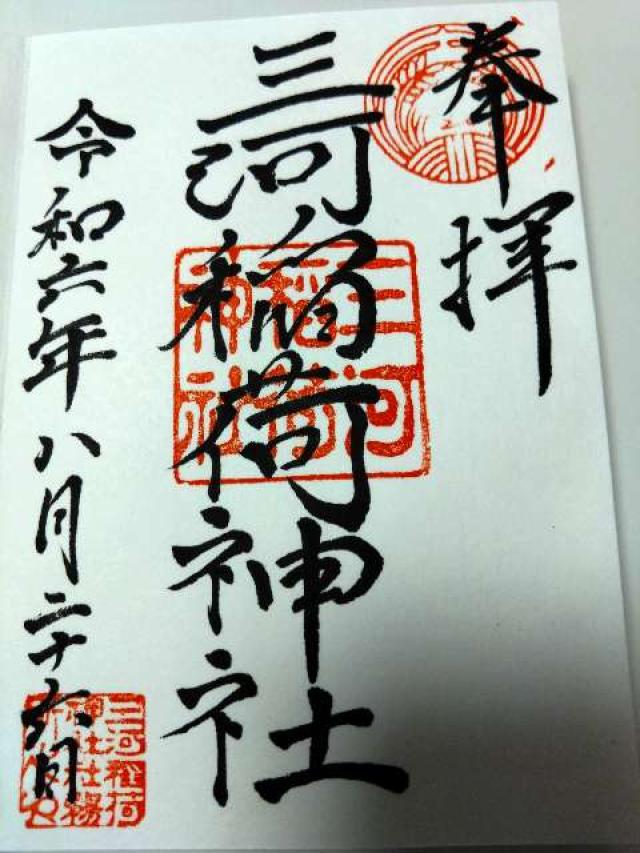 奉拝
三河稲荷神社
三河稲荷神社
令和六年八月二十六日
三河稲荷
神社社務